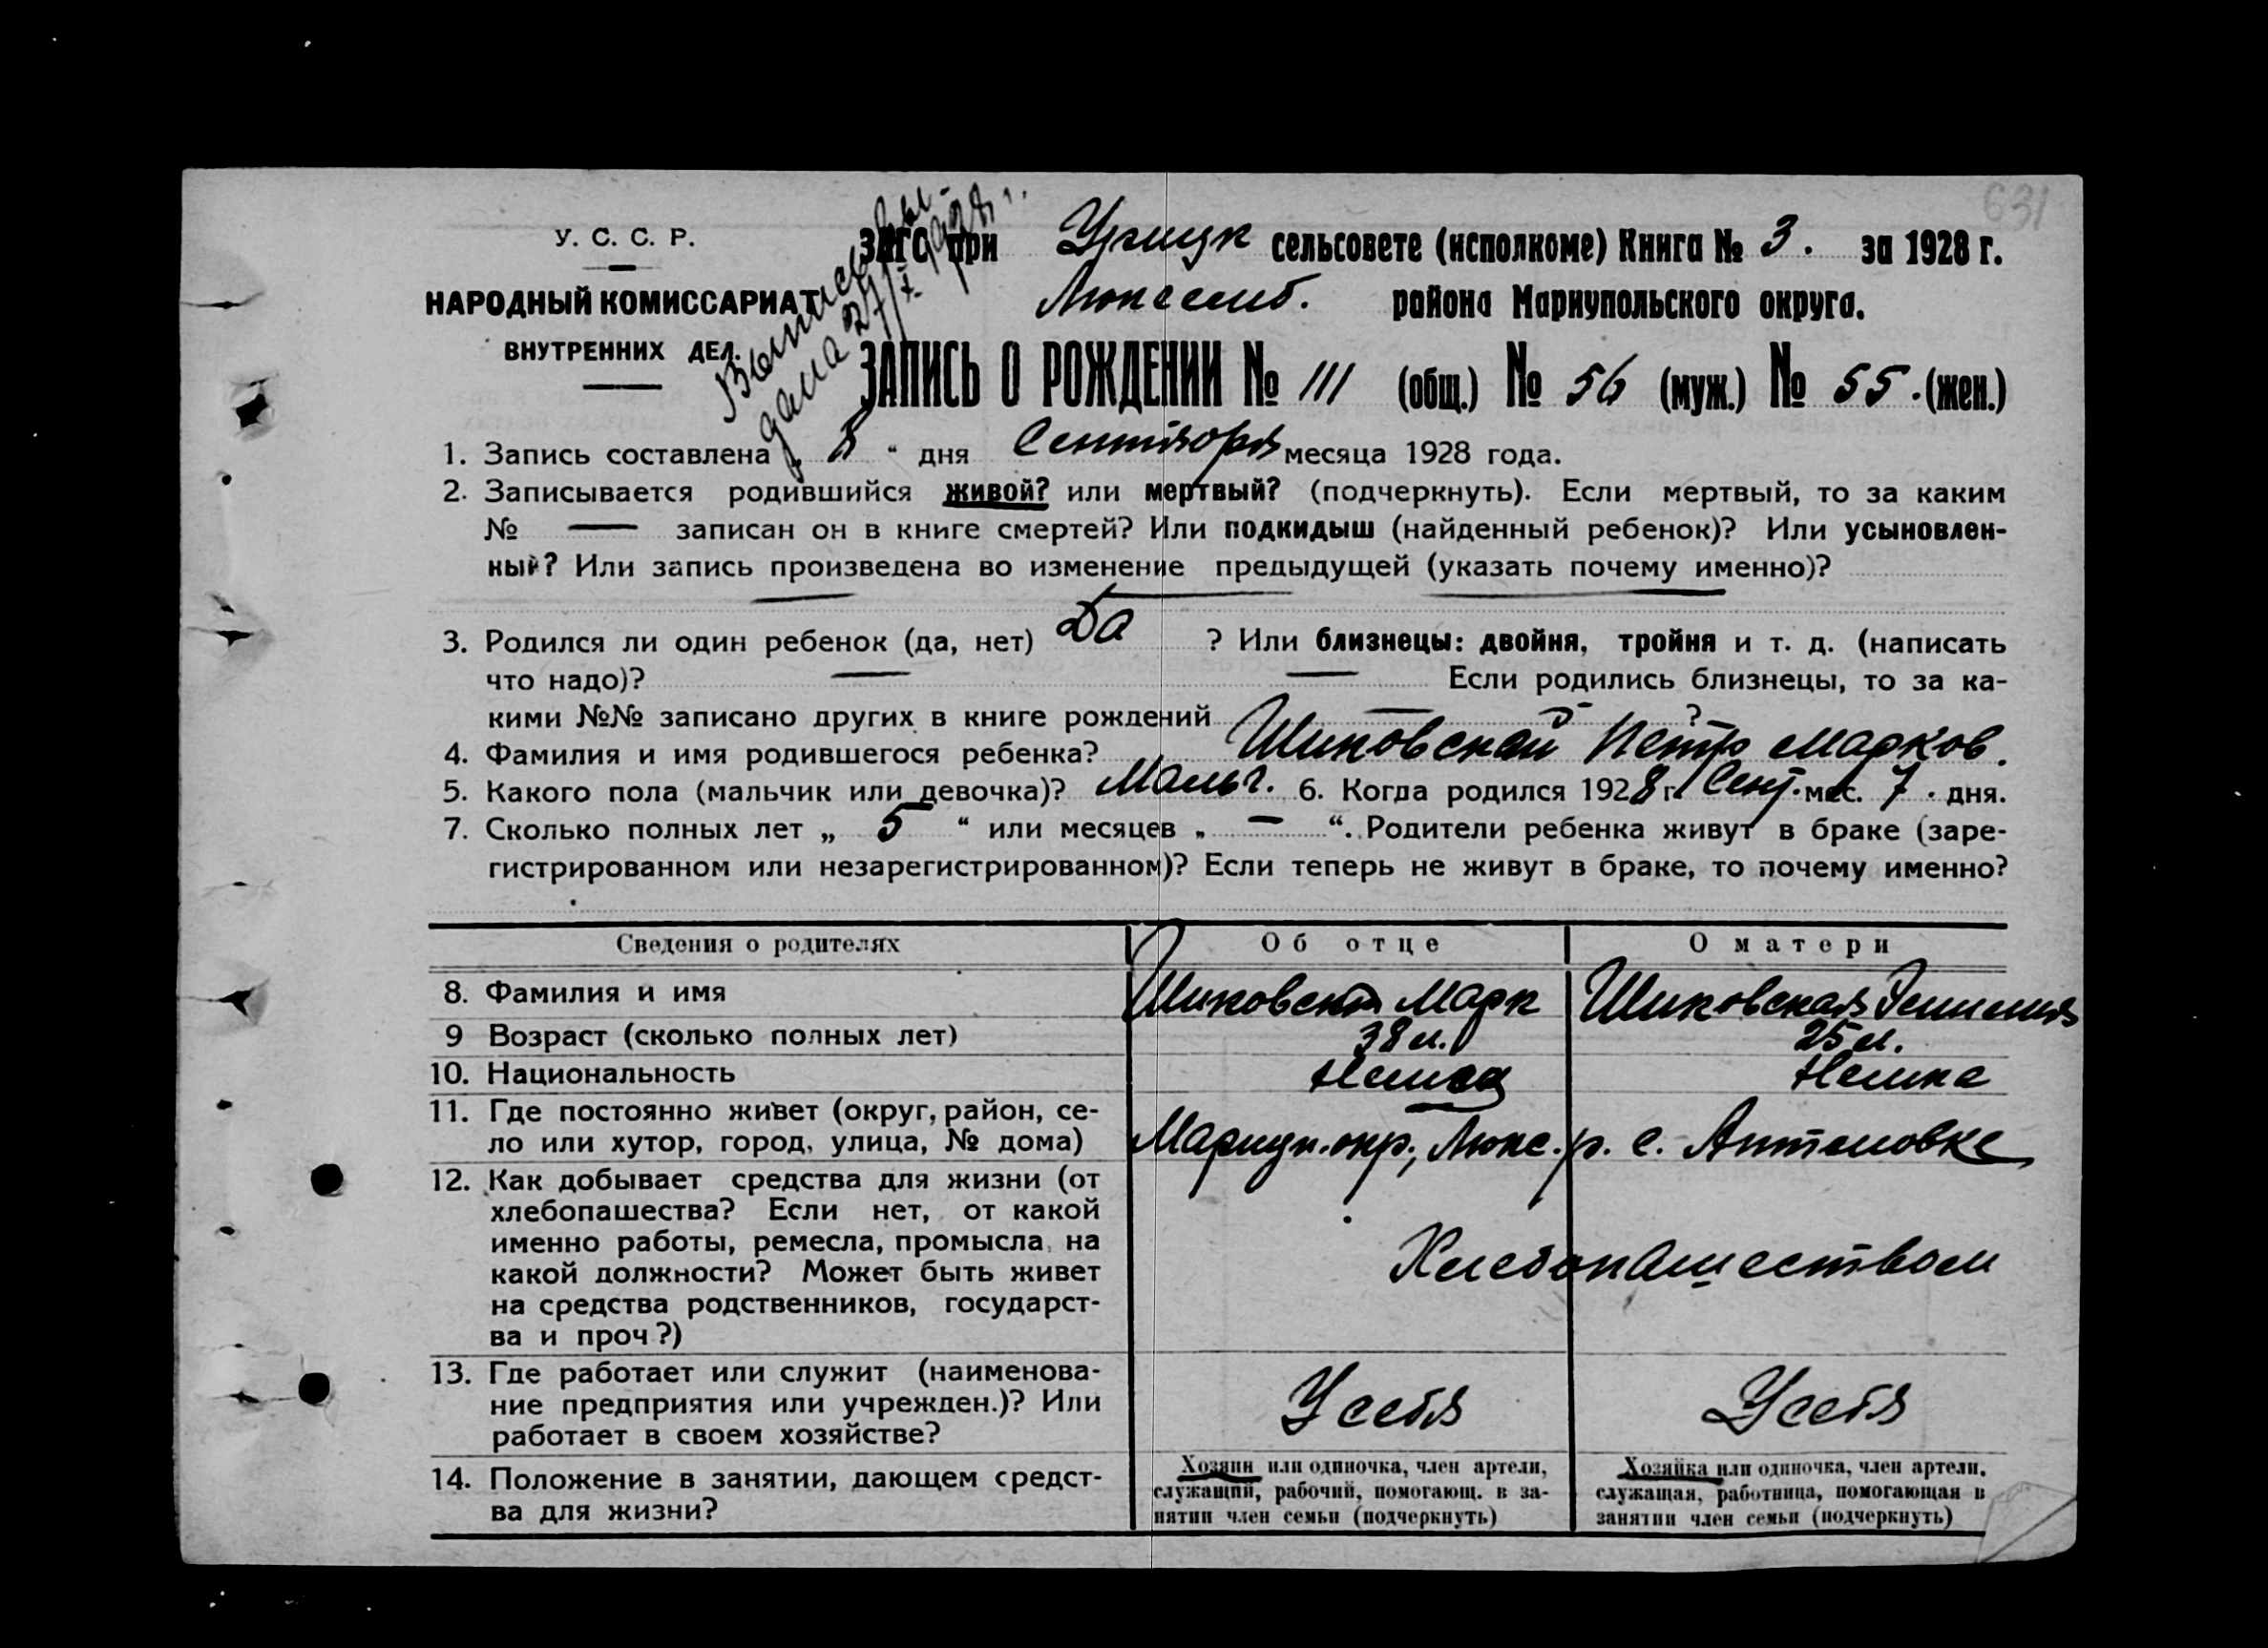 631
У. С. С. Р.
ЗАГС при Урицк сельсовете (исполкоме) Книга № 3. за 1928 г.
НАРОДНЫЙ КОМИССАРИАТ
Люксемб. района Мариупольского округа.
ВНУТРЕННИХ ДЕЛ.
Выпись вы-
дана 27/X 1928 г.
ЗАПИСЬ О РОЖДЕНИИ № 111 (общ.) № 56 (муж.) № 55 (жен.)
1. Запись составлена „ 8 “ дня Сентября месяца 1928 года.
2. Записывается родившийся живой? или мертвый? (подчеркнуть). Если мертвый, то за каким
№ — записан он в книге смертей? Или подкидыш (найденный ребенок)? Или усыновлен-
ный? Или запись произведена во изменение предыдущей (указать почему именно)?
3. Родился ли один ребенок (да, нет) Да ? Или близнецы: двойня, тройня и т. д. (написать
что надо)? — — Если родились близнецы, то за ка-
кими №№ записано других в книге рождений — ?
4. Фамилия и имя родившегося ребенка? Шиковский Петр Марков.
5. Какого пола (мальчик или девочка)? Мальч. 6. Когда родился 1928 г. Сент. мес. 7 дня.
7. Сколько полных лет „ 5 “ или месяцев „ — “. Родители ребенка живут в браке (заре-
гистрированном или незарегистрированном)? Если теперь не живут в браке, то почему именно?
Сведения о родителях Об отце О матери
8. Фамилия и имя Шиковский Марк Шиковская
9 Возраст (сколько полных лет) 38 л. 25 л.
10. Национальность Немец Немка
11. Где постоянно живет (округ, район, се-
ло или хутор, город, улица, № дома) Мариуп. окр., Люкс. р. с. Антоновке
12. Как добывает средства для жизни (от
хлебопашества? Если нет, от какой
именно работы, ремесла, промысла, на
какой должности? Может быть живет
на средства родственников, государст-
ва и проч?)
Хлебопашеством
13. Где работает или служит (наименова-
ние предприятия или учрежден.)? Или
работает в своем хозяйстве?
У себя У себя
14. Положение в занятии, дающем средст-
ва для жизни?
Хозяин или одиночка, член артели,
служащий, рабочий, помогающ. в за-
нятии член семьи (подчеркнуть)
Хозяйка или одиночка, член артели,
служащая, работница, помогающая в
занятии член семьи (подчеркнуть)